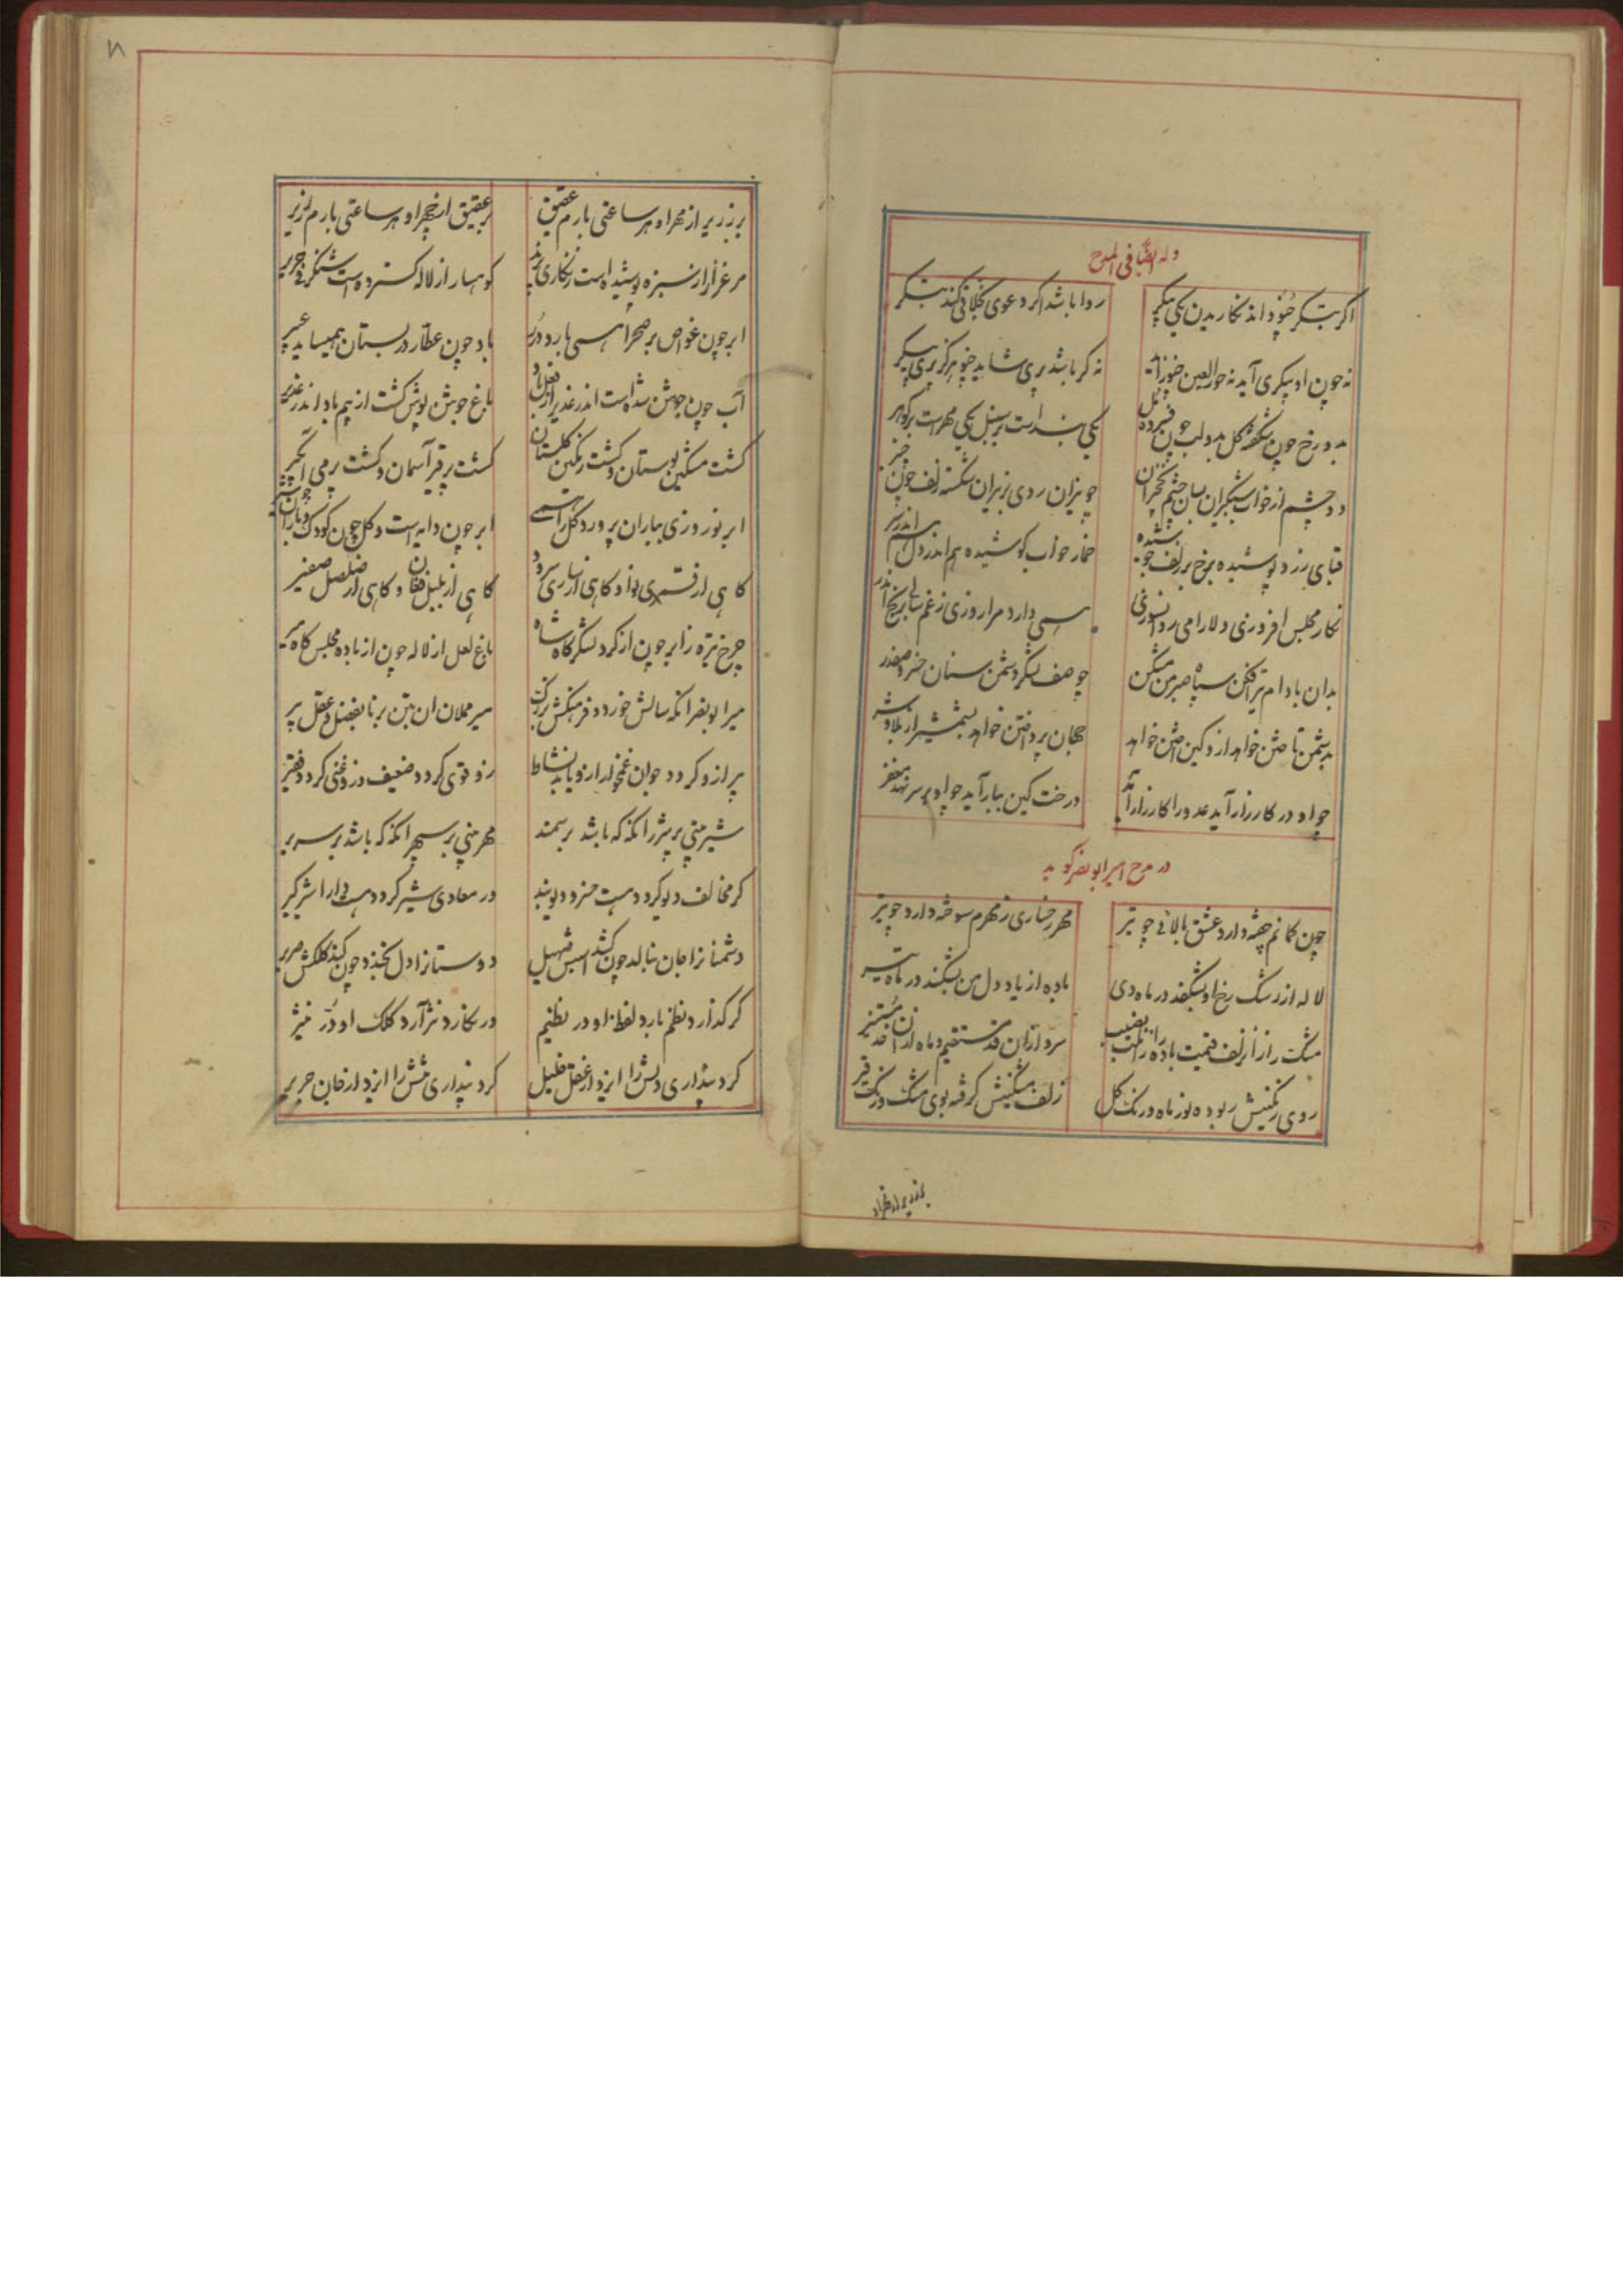 وله ایضاً فی المدح
اگر بتگر چنو داند نگاریدن یکی پیکر روا باشد اگر دعوی خلاقی کند بتگر
نه چون او پیکری آید نه حورالعین چنو زاید نه گر باشد پری شاید چنو هرگز پری پیکر
بدو رخ چون شکفته گل بدو لب چون فسرده مل یکی است بر سنبل یکی مهر است بر گوهر
دو چشم از خواب شبگیران بسان چشم نخجیران چو نیزان روی زیر آن شکسته زلف چون چنبر
قبای زرد پوشیده برخ بر زلف جوشیده خمار خواب کوشیده هم اندر دل هم اندر سر
نگار مجلس افروزی دلارامی روانسوزی همی دارد مرا روزی ز غم برنج اندر
بدان بادام تیرافکن سپاه صبر من بشکن چو صف لشکر دشمن سنان خسرو صفدر
بدشمن تاختن خواهد ازو کین آختن خواهد جهان پرداختن خواهد بشمشیر از بلا و شر
چو او در کارزار آید عدو را کار زار آید درخت کین ببار آید چو او بر سر نهد مغفر
در مدح امیر ابونصر گوید
چون کمانم چفته دارد عشق بالائی چو تیر مهر رخساری ز مهرم سوخته دارد چو تیر
لاله از رشک رخ او بشکفد در ماه دی باده از یاد دل من بشکند در ماه تیر
مشک را زان زلف قیمت باده را زان لب نصیب سرو از آن قد مستقیم و ماه از آن خد مستنیر
روی رنگینش ربوده نور ماه و رنگ گل زلف مشکینش گرفته بوی مشک و رنگ قیر
بر زریر از مهر او هر ساعتی بارم عقیق بر عقیق از هجر او هر ساعتی بارم زریر
مرغزار از سبزه پوشیده است زنگاری پرند کوهسار از لاله گسترده است شنگرفی حریر
ابر چون غواص بر صحرا همی بارد درر باد چون عطار در بستان همیساید عبیر
آب چون جوشن شده است اندر غدیر از فعل باد باغ جوشن پوش گشت از بیم باد اندر غدیر
گشت مشکین بوستان و گشت رنگین گلستان گشت پر قیر آسمان و گشت پر می آبگیر
ابر نوروزی بباران پرورد گل را همی ابر چون دایه است و گل چون کودک و باران چو شیر
گاهی از قمری نوا و گاهی از ساری سرود گاهی از بلبل فغان و گاهی از صلصل صفیر
چرخ تیره ز ابر چون از گرد لشکرگاه شاه باغ لعل از لاله چون از باده مجلس گاه میر
میر ابونصر آنکه سالش خورد و فرهنگش بزرگ میر مملان آن بتن برنا بفضل و عقل پیر
پیر ازو گردد جوان غمخوار ازو یابد نشاط زو قوی گردد ضعیف و زو غنی گردد فقیر
شیر بینی بر هژبر آنگه که باشد بر سمند مهر بینی بر سپهر آنگه که باشد بر سریر
گر مخالف دیو گردد هست خسرو دیوبند ور معادی شیر گردد هست دارا شیرگیر
دشمنانرا جان بنالد چون کشد اسبش صهیل دوستانرا دل بخندد چون کند کلکش صریر
گر گذارد نظم بارد لفظ او در نظیم ور نگارد نثر آرد کلک او در نثیر
کرد پنداری دلش را ایزد از عقل خلیل کرد پنداری تنش را ایزد از جان جریر